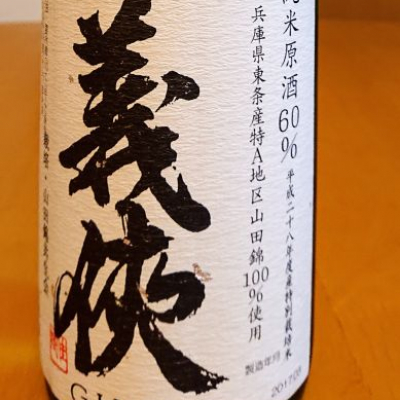 純米原酒60%
平成二十八年度産特別栽培米
兵庫県東条産特A地区山田錦
100%使用
製造年月
2017.05
義侠